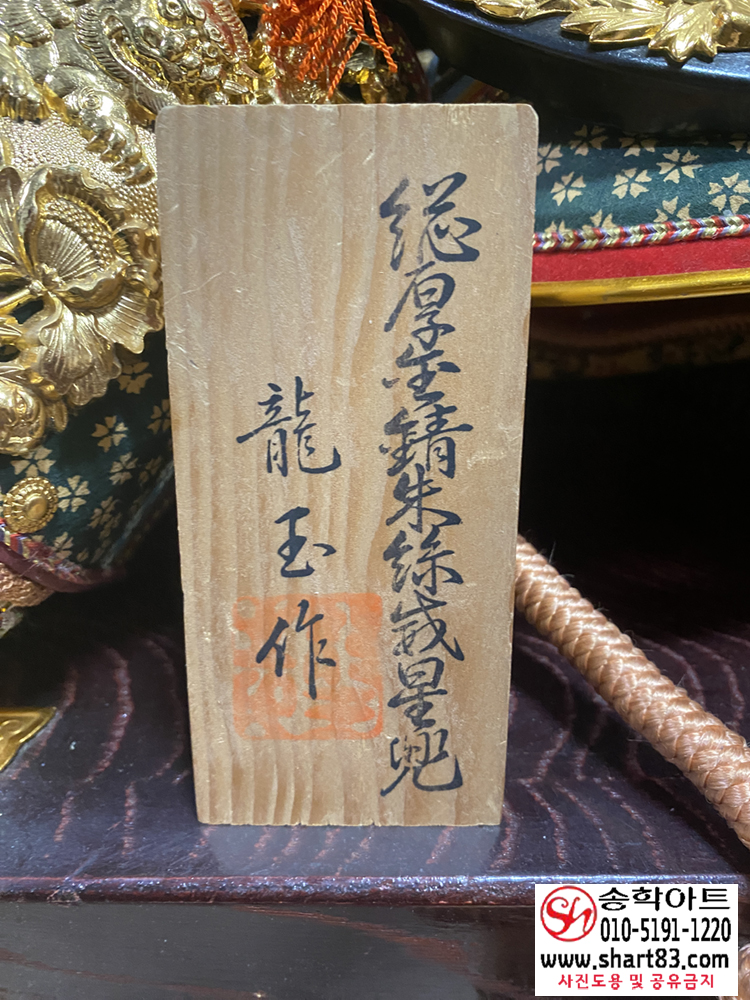 総厚金錆朱絲威星兜
龍玉作
송학아트
010-5191-1220
www.shart83.com
사진도용 및 공유금지